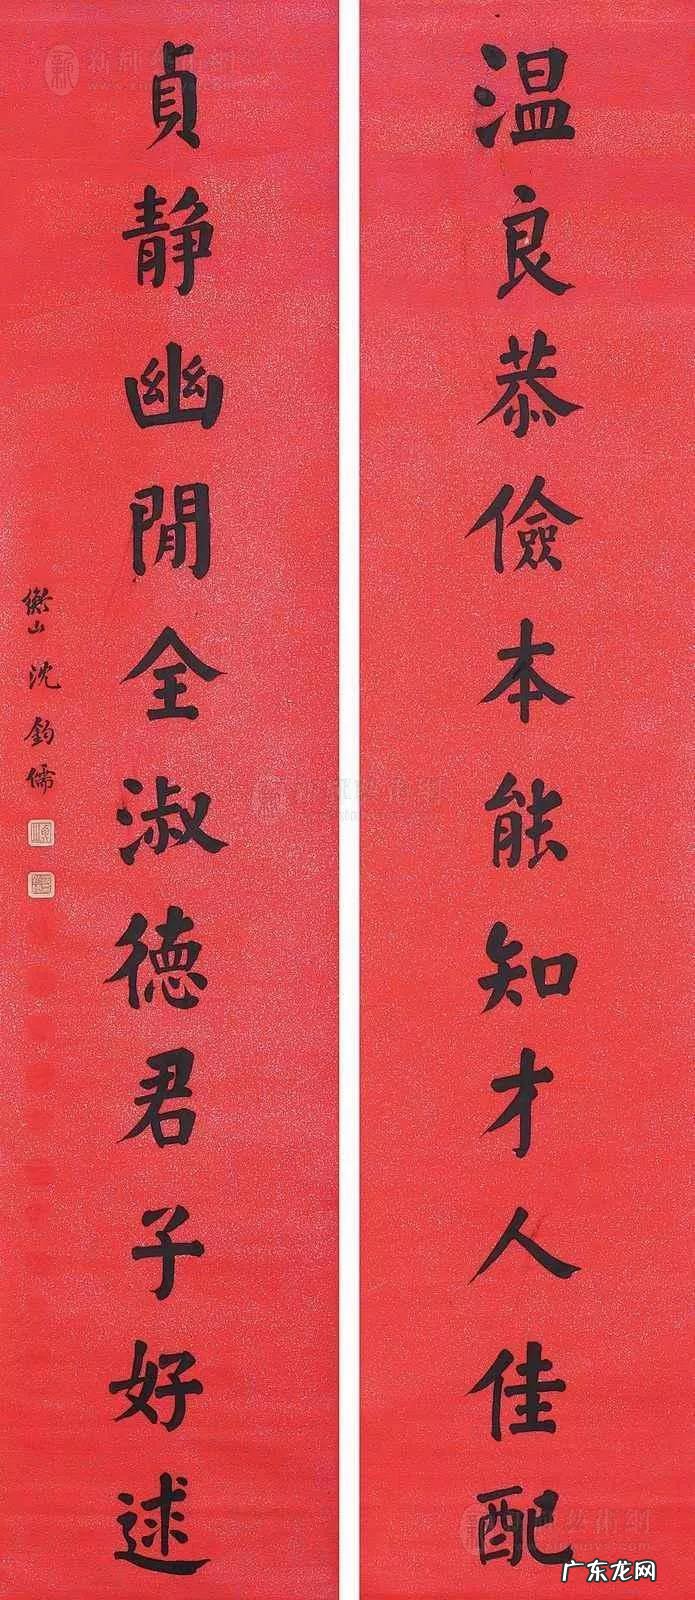 温良恭儉本能知才人佳配
貞静幽閒全淑德君子好逑
衡山沈鈞儒
广东龙网